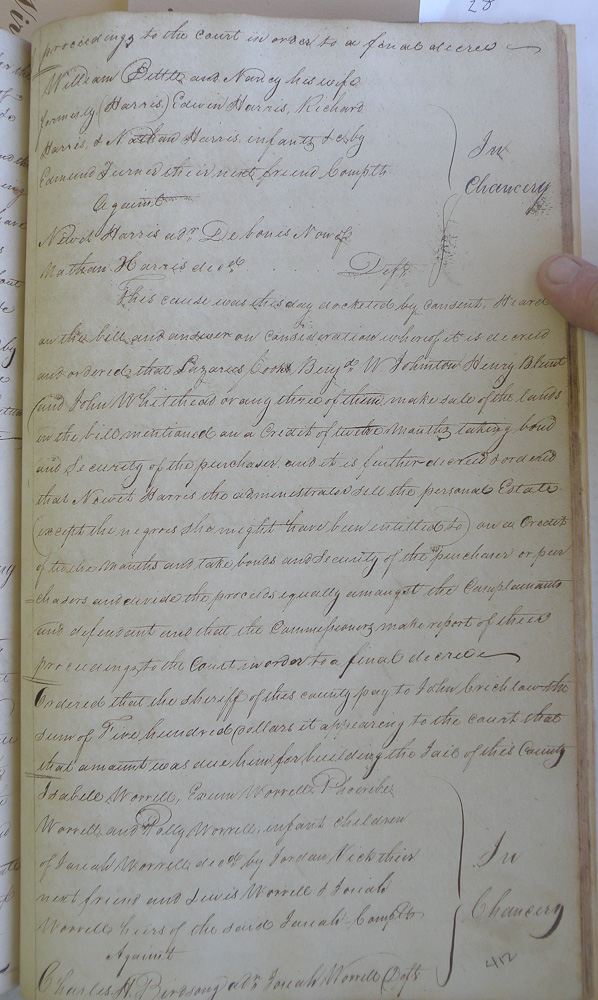 28
proceedings to the court in order to a final decree
William Pettle and Nancy his wife
formerly (Harris) Edwin Harris, Richard
Harris, & Nathan Harris, infants &c by
Edmund Turner their next friend Complts
Against
Newit Harris adr. De bonis Non of
Nathan Harris decd. Defts
In
Chancery
This cause was this day docketed by consent, Heard
on the bill and answer on Consideration whereof it is decreed
and ordered that Lazarus Cook Benja. W Johnston Henry Blunt
and John Whitehead or any three of them, make sale of the lands
in the bill mentioned on a Credit of twelve Months, taking bond
and Security of the purchaser and it is further decreed & ordered
that Newit Harris the administrator sell the personal Estate
(except the negroes she might have been entitled to) on a Credit
of twelve Months and take bonds and Security of the purchaser or pur
chasers and divide the proceeds equally amongst the Complainants
and defendant and that the Commissioners make report of their
proceedings to the Court in order to a final decree
Ordered that the sheriff of this county pay to John the
sum of Five hundred Dollars it appearing to the court that
that amount was due him for building the Jail of this County
Isabell Worrell, Exum Worrell,
Worrell and Polly Worrell, infant children
of Josiah Worrell decd. by Jordan Vick their
next friend and Lewis Worrell & Josiah
Worrell heirs of the said Josiah Complts
Against
Charles H. Birdsong adr. Josiah Worrell Defts
In
Chancery
412